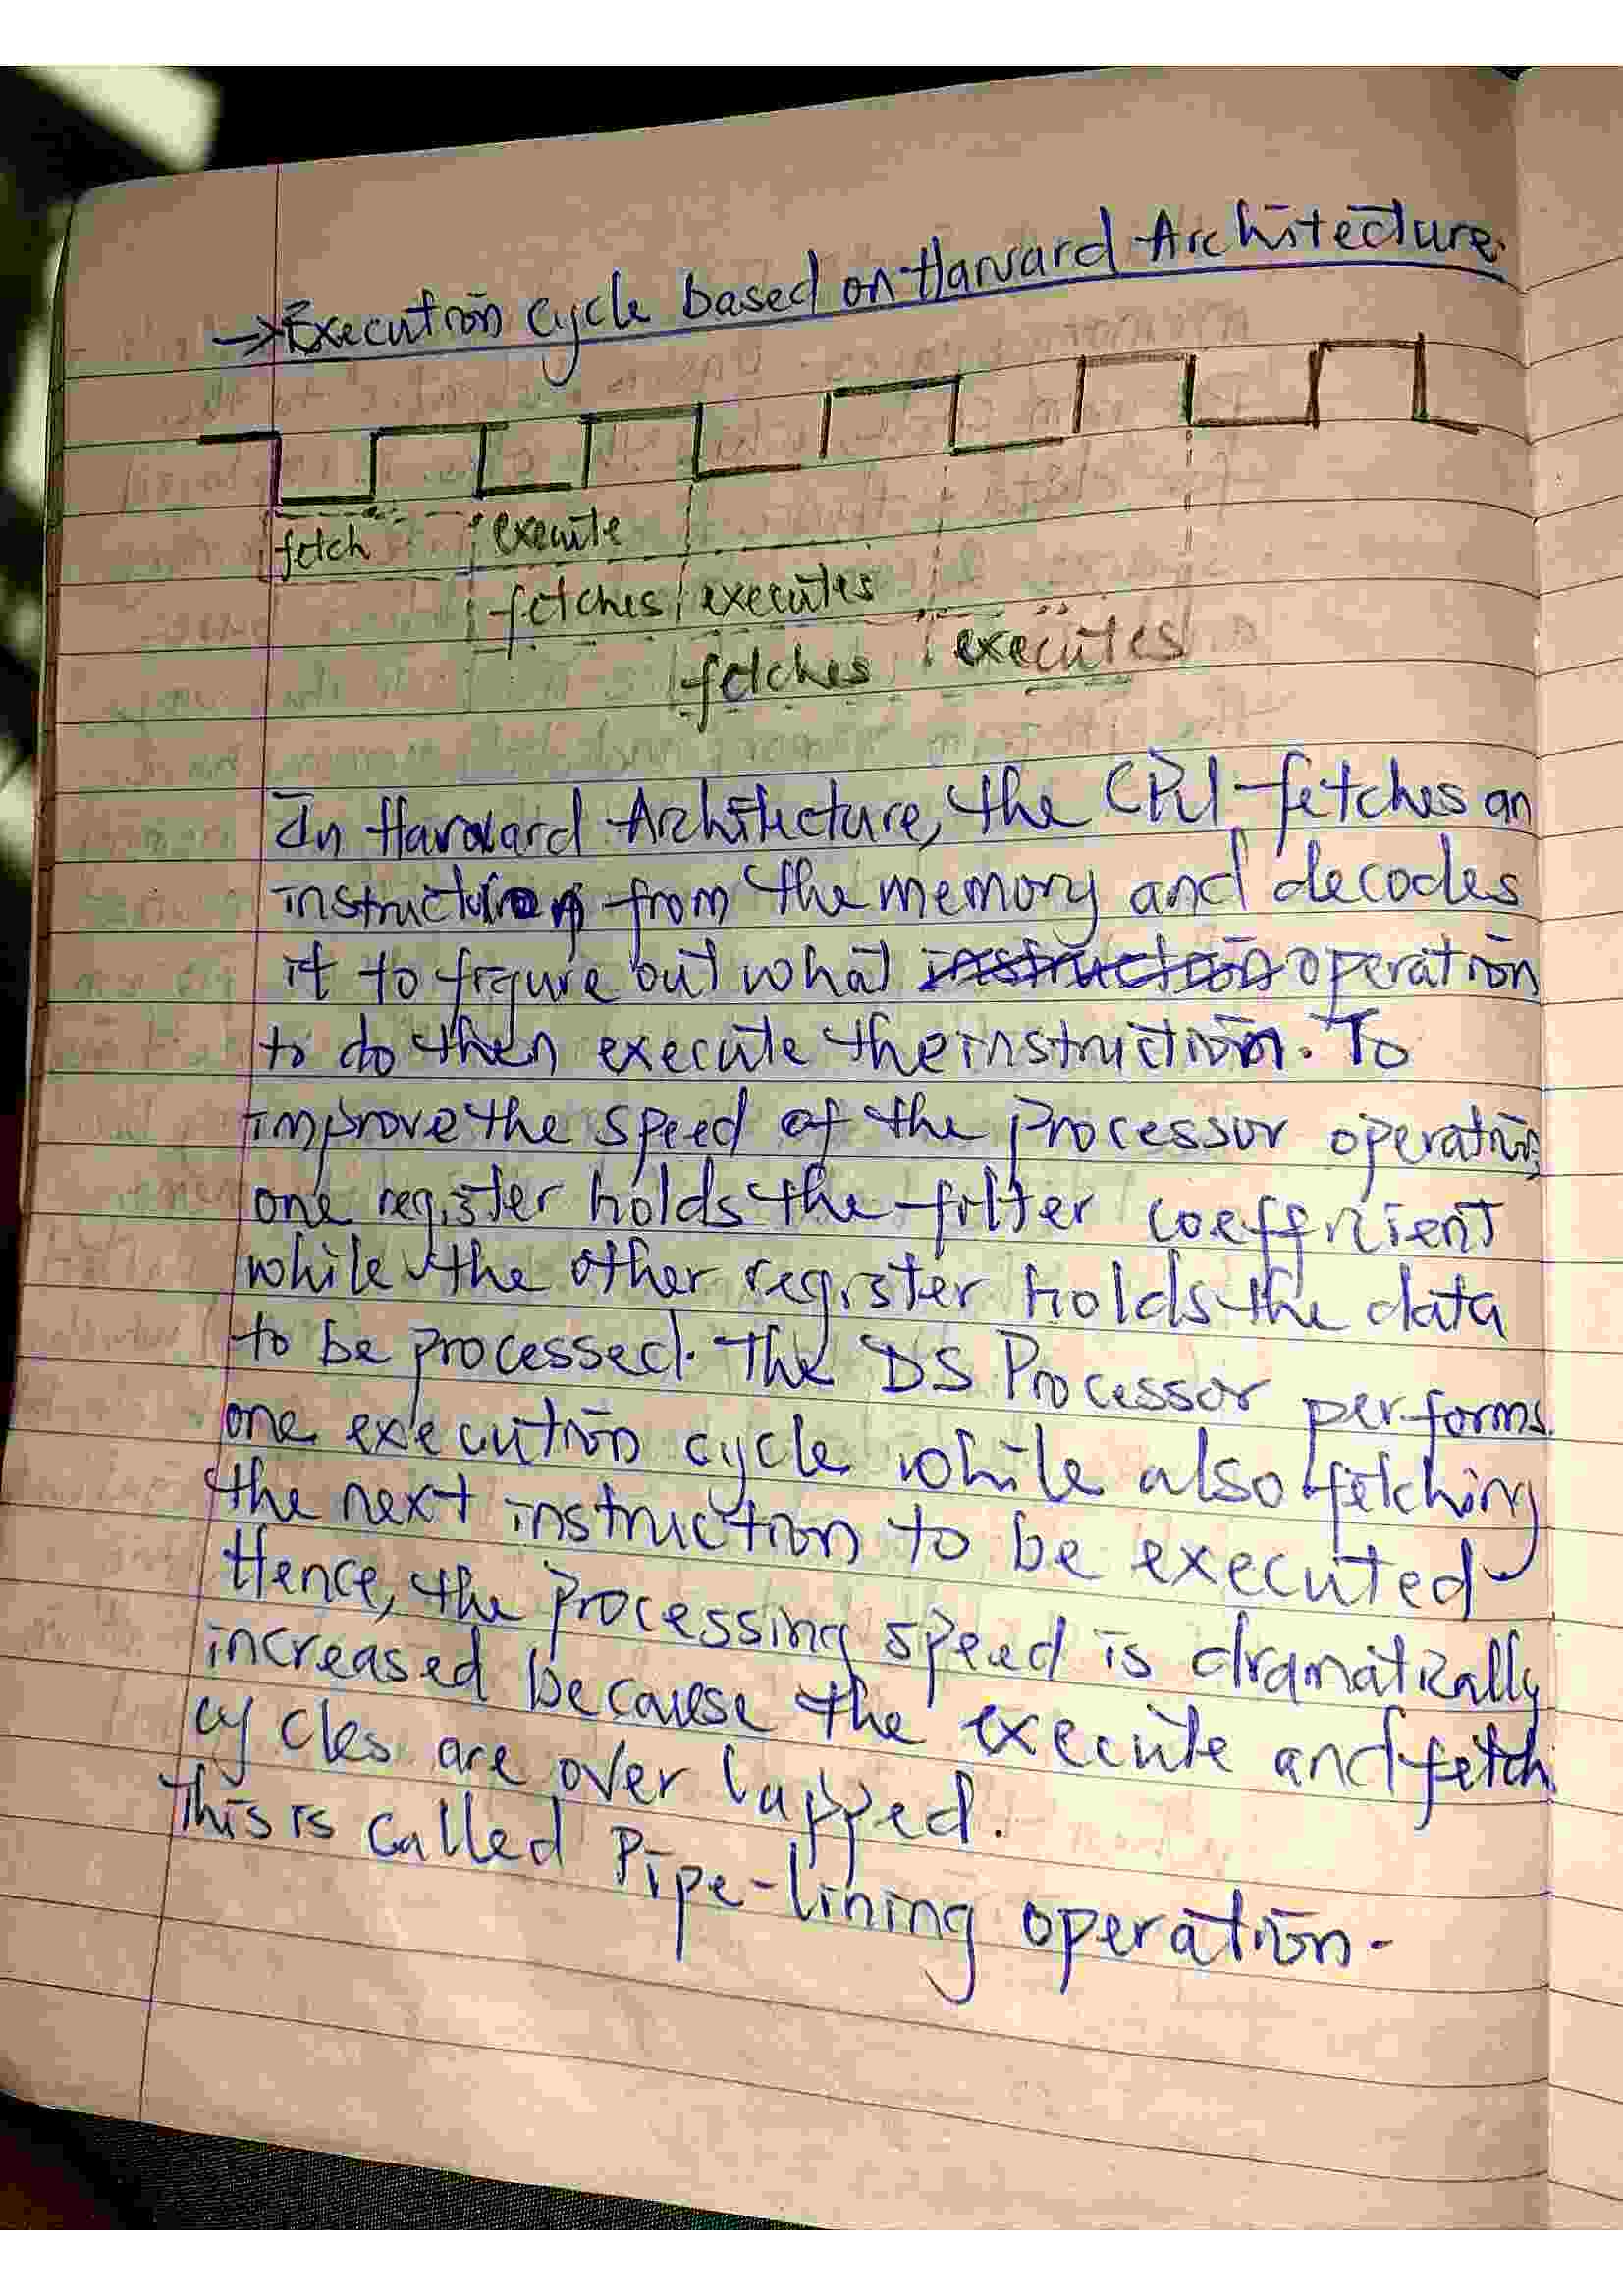 → Execution cycle based on Harvard Architecture.
fetch execute
fetches executes
fetches executes
In Harvard Architecture, the CPU fetches an
instruction from the memory and decodes
it to figure out what instruction operation
to do then execute the instruction. To
improve the speed of the processor operation,
one register holds the filter coefficient
while the other register holds the data
to be processed. The DS Processor performs
one execution cycle while also fetching
the next instruction to be executed
Hence, the processing speed is dramatically
increased because the execute and fetch
cycles are over lapped.
This is called Pipe-lining operation.